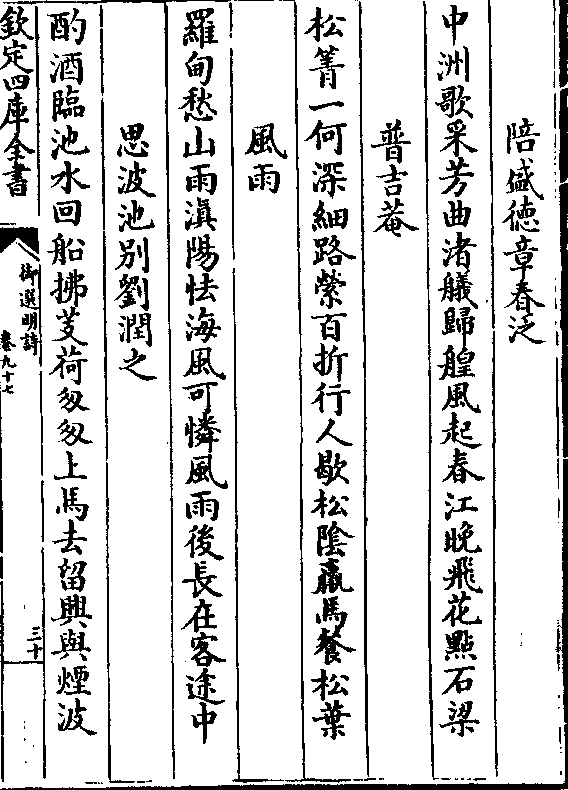 陪盛徳章春泛
中洲歌采芳曲渚艤歸艎風起春江晚飛花㸃石梁
普吉菴
松箐一何深細路縈百折行人歇松陰羸馬餐松葉
風雨
羅甸愁山雨滇陽怯海風可憐風雨後長在客途中
思波池别劉潤之
酌酒臨池水回船拂芰荷匆匆上馬去留興與煙波
欽定四庫全書
御選明詩
卷九十七
三十